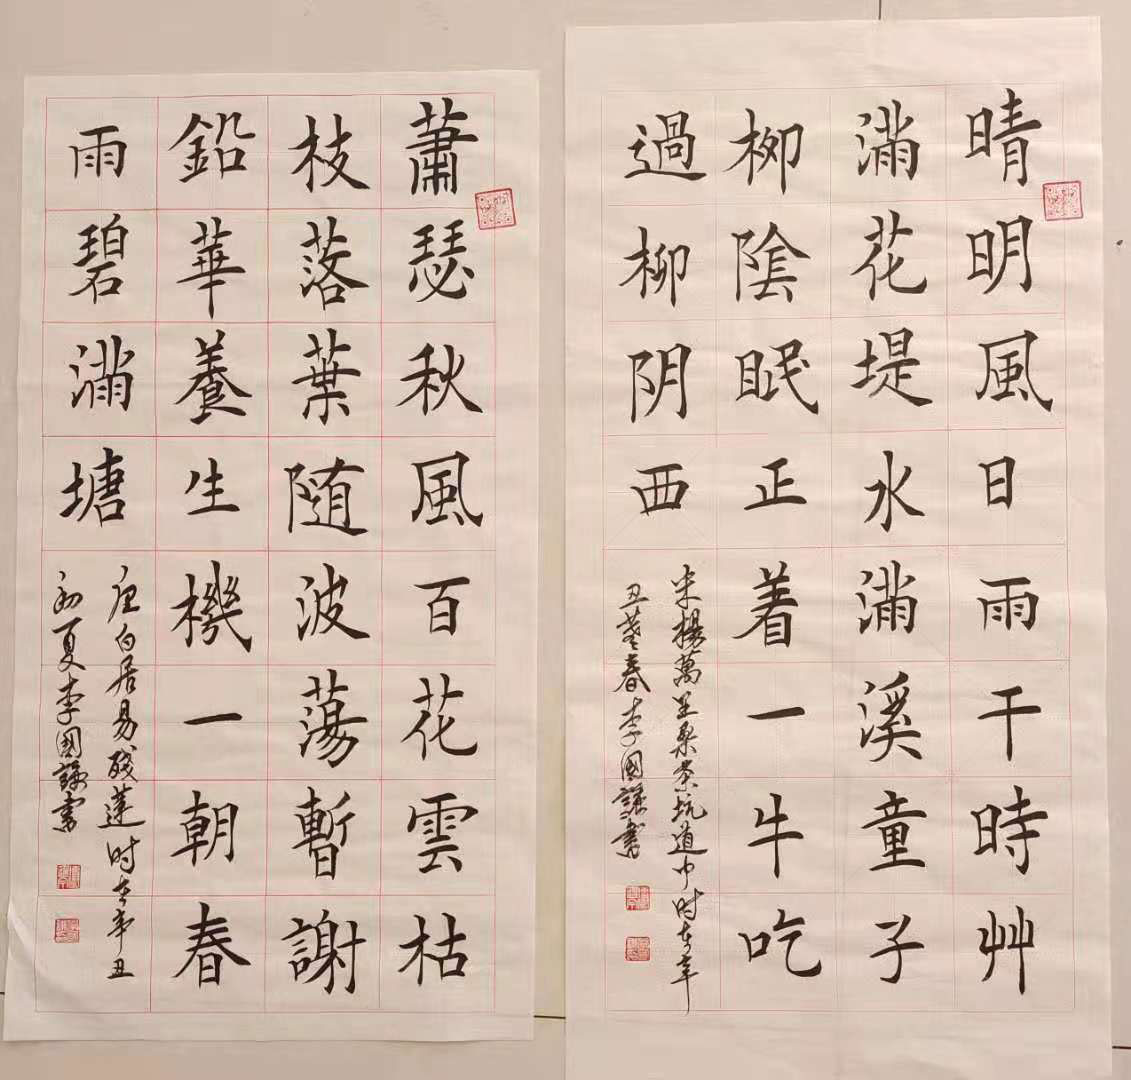 晴明風日雨干時艸
滿花堤水滿溪童子
柳陰眠正着一牛吃
過柳阴西
宋楊萬里桑茶坑道中时在辛
丑暮春李國謙書
蕭瑟秋風百花雲枯
枝落葉随波蕩暫謝
鉛華養生機一朝春
雨碧滿塘
唐白居易殘蓮时在辛丑
初夏李國謙書